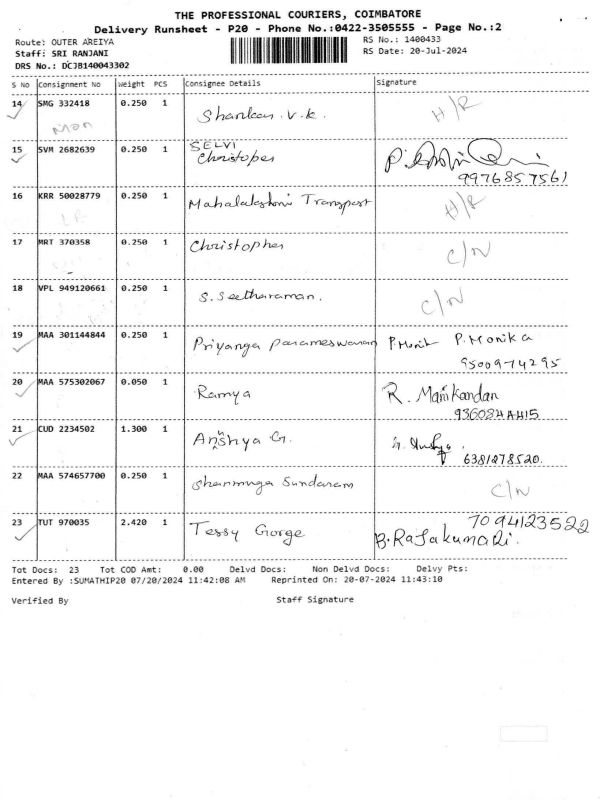 THE PROFESSIONAL COURIERS, COIMBATORE
Delivery Runsheet - P20 - Phone No.:0422-3505555 - Page No.:2
Route: OUTER AREIYA
RS No.: 1400433
Staff: SRI RANJANI
RS Date: 20-Jul-2024
DRS No.: DCJB140043302
S No Consignment No Weight PCS Consignee Details Signature
14 SMG 332418 0.250 1 Shankar. V. K. H/R
mon
15 SVM 2682639 0.250 1 SELVI
Christoper
9976857561
16 KRR 50028779 0.250 1 Mahalakshmi Transport H/R
17 MRT 370358 0.250 1 Christopher C/N
18 VPL 949120661 0.250 1 S. Seetharaman. C/N
19 MAA 301144844 0.250 1 Priyanga Parameswaran P.Monik P. Monika
9500974295
20 MAA 575302067 0.050 1 Ramya R. Manikandan
21 CUD 2234502 1.300 1 G.
6381278520.
22 MAA 574657700 0.250 1 Shanmuga Sundaram C/N
23 TUT 970035 2.420 1 Tessy Gorge 7094123522
B. Rajakumari.
Tot Docs: 23 Tot COD Amt: 0.00 Delvd Docs: Non Delvd Docs: Delvy Pts:
Entered By :SUMATHIP20 07/20/2024 11:42:08 AM Reprinted On: 20-07-2024 11:43:10
Verified By Staff Signature